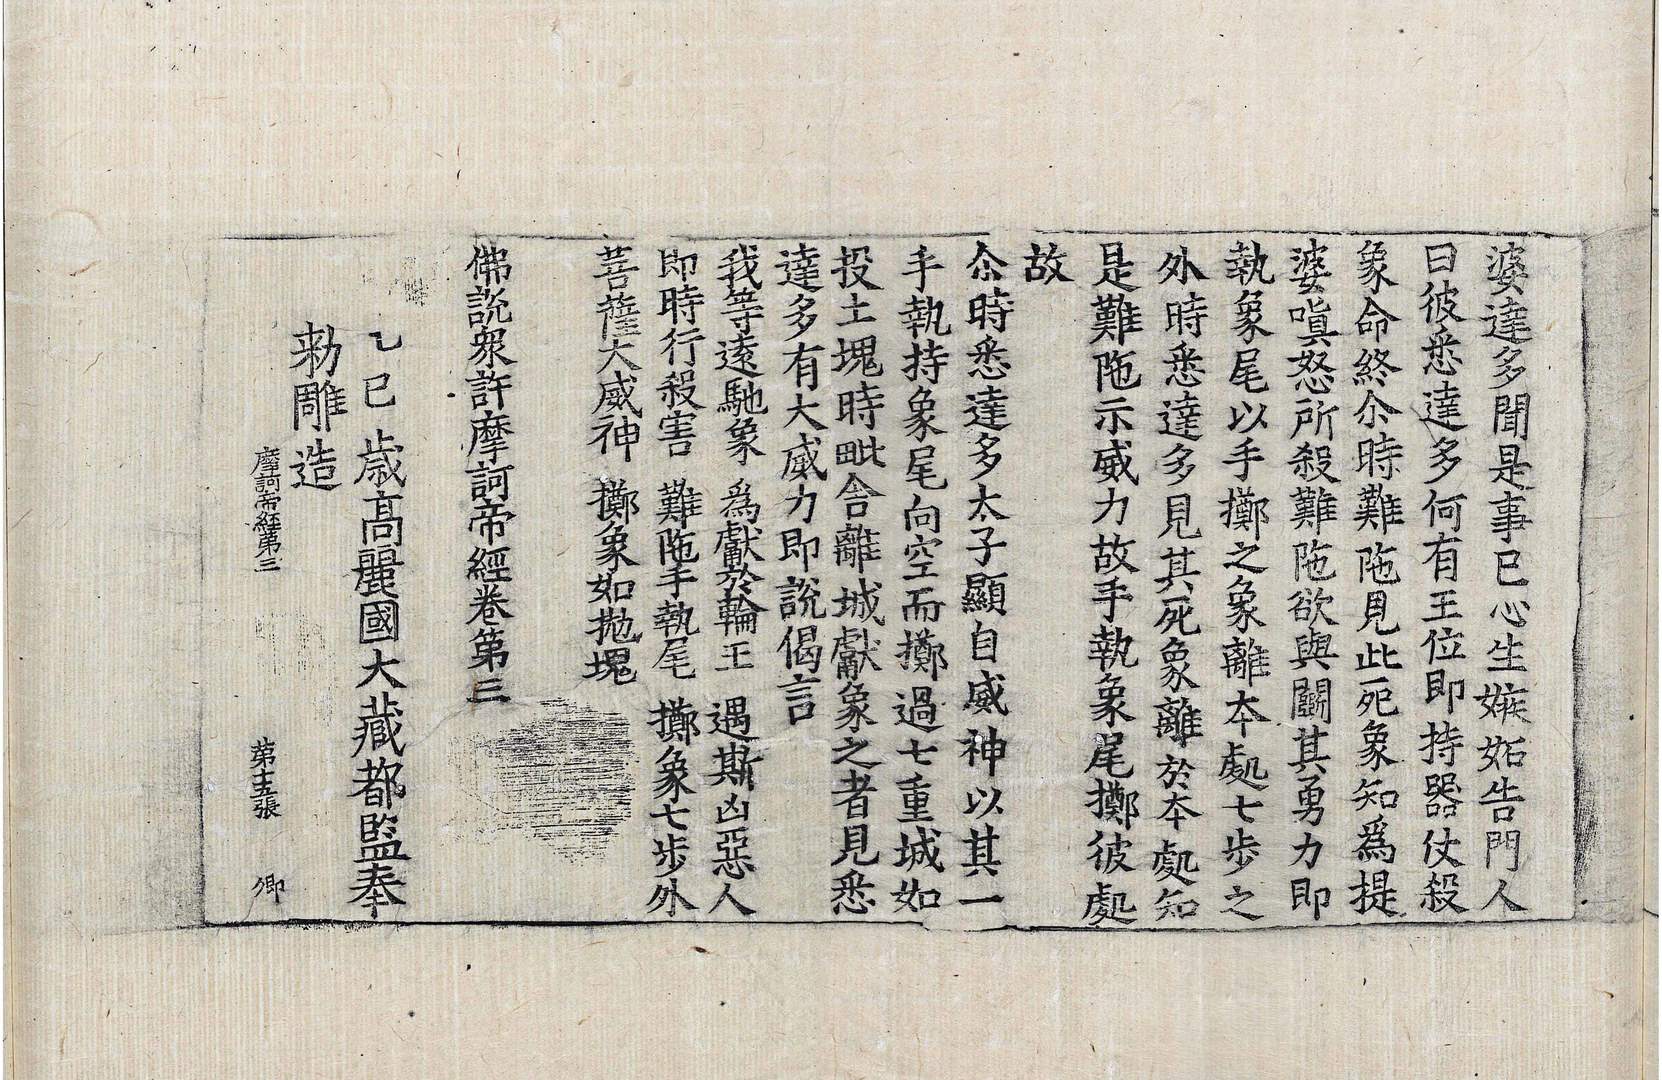 婆達多聞是事已心生嫉妬告門人
曰彼悉達多何有王位即持器仗殺
象命終尒時難陁見此死象知爲提
婆嗔怒所殺難陁欲與鬬其勇力即
執象尾以手擲之象離本處七步之
外時悉達多見其死象離於本處知
是難陁示威力故手執象尾擲彼處
故
尒時悉達多太子顯自威神以其一
手執持象尾向空而擲過七重城如
投土塊時毗舍離城獻象之者見悉
達多有大威力即說偈言
我等遠馳象 爲獻於輪王 遇斯凶惡人
即時行殺害 難陁手執尾 擲象七步外
菩薩大威神 擲象如拋塊
佛說衆許摩訶帝經卷第三
乙巳歲高麗國大藏都監奉
勑雕造
摩訶帝經第三 第十五張 卿